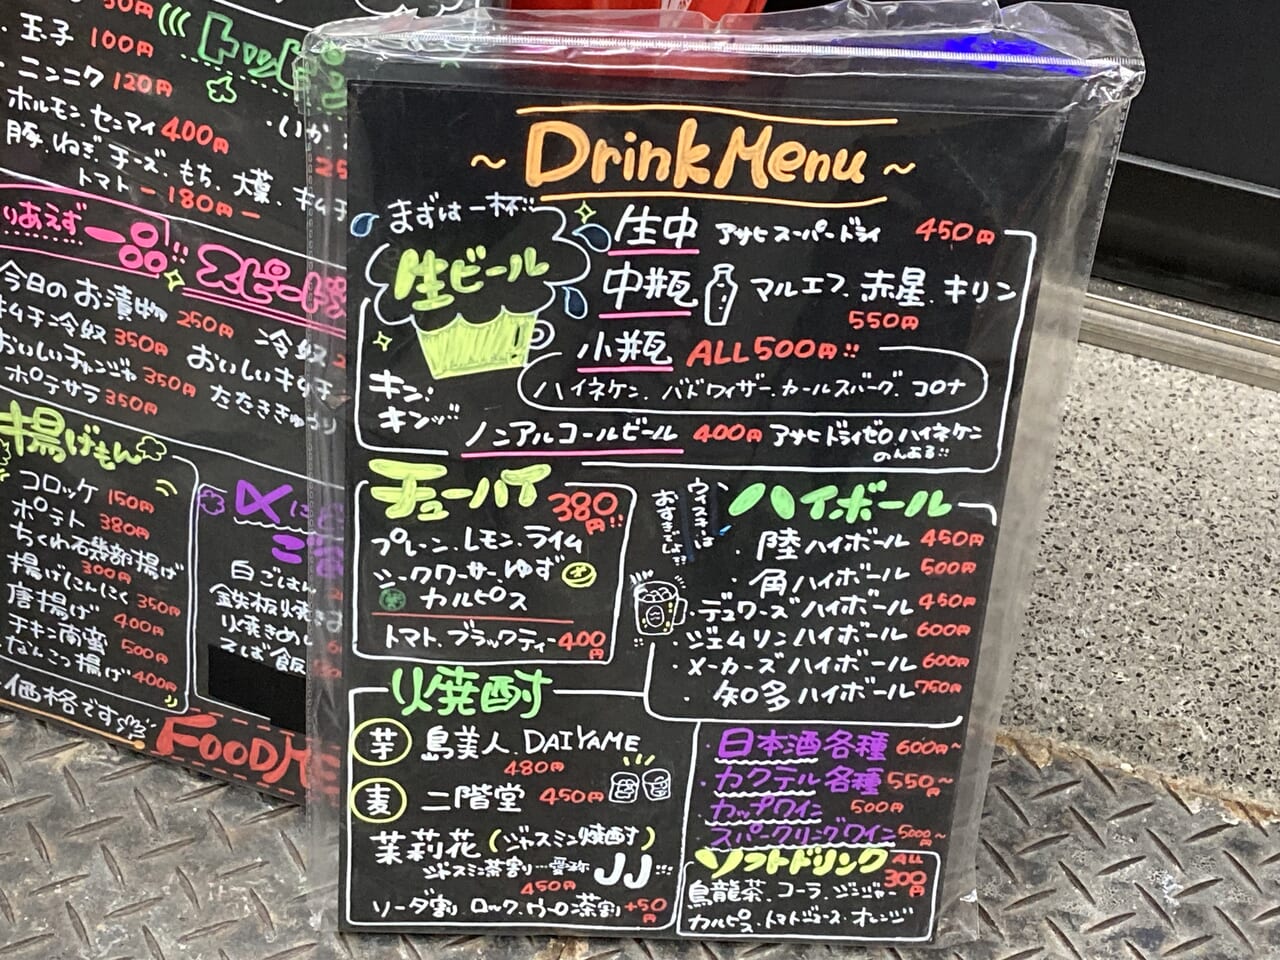 玉子 100円
ニンニク 120円
ホルモン、センマイ 400円
豚、ねぎ、チーズ、もち、大葉、キムチ
トマト ー180円ー
一品
今日のお漬物 250円
キムチ冷奴 350円
おいしいチャンジャ 350円
おいしいキムチ
ポテサラ 350円
たたききゅうり
冷奴
揚げもん
コロッケ 150円
ポテト 380円
ちくわ石袋節揚げ
300円
揚げにんにく 350円
唐揚げ 400円
チキン南蛮 500円
なんこつ揚げ 400円
〆に
白ごはん
鉄板焼き
焼きめし
そば飯
価格です
FOOD
~ Drink Menu ~
まずは一杯!!
生ビール
キン!
キンッ!!
生中 アサヒスーパードライ 450円
中瓶 マルエフ、赤星、キリン
550円
小瓶 ALL 500円!!
ハイネケン、バドワイザー、カールスバーグ、コロナ
ノンアルコールビール 400円 アサヒドライゼロ ハイネケン
のんある!!
チューハイ 380円!!
プレーン、レモン、ライム
シークワーサー、ゆず
カルピス
トマト、ブラックティー 400円
ウィスキーは
おすきでしょ?!
ハイボール
・陸ハイボール 450円
・角ハイボール 500円
・デュワーズハイボール 450円
・ジェムリンハイボール 600円
・メーカーズハイボール 600円
・知多ハイボール 750円
焼酎
芋 島美人、DAIYAME
480円
麦 二階堂 450円
茉莉花(ジャスミン焼酎)
ジャスミン茶割…愛称 JJ!!!
450円
ソーダ割、ロック、ウーロン茶割 +50円
・日本酒各種 600円~
・カクテル各種 550円~
・カップワイン 500円
・スパークリングワイン 5000円~
ソフトドリンク ALL 300円
烏龍茶、コーラ、ジンジャー
カルピス、トマトジュース、オレンジ